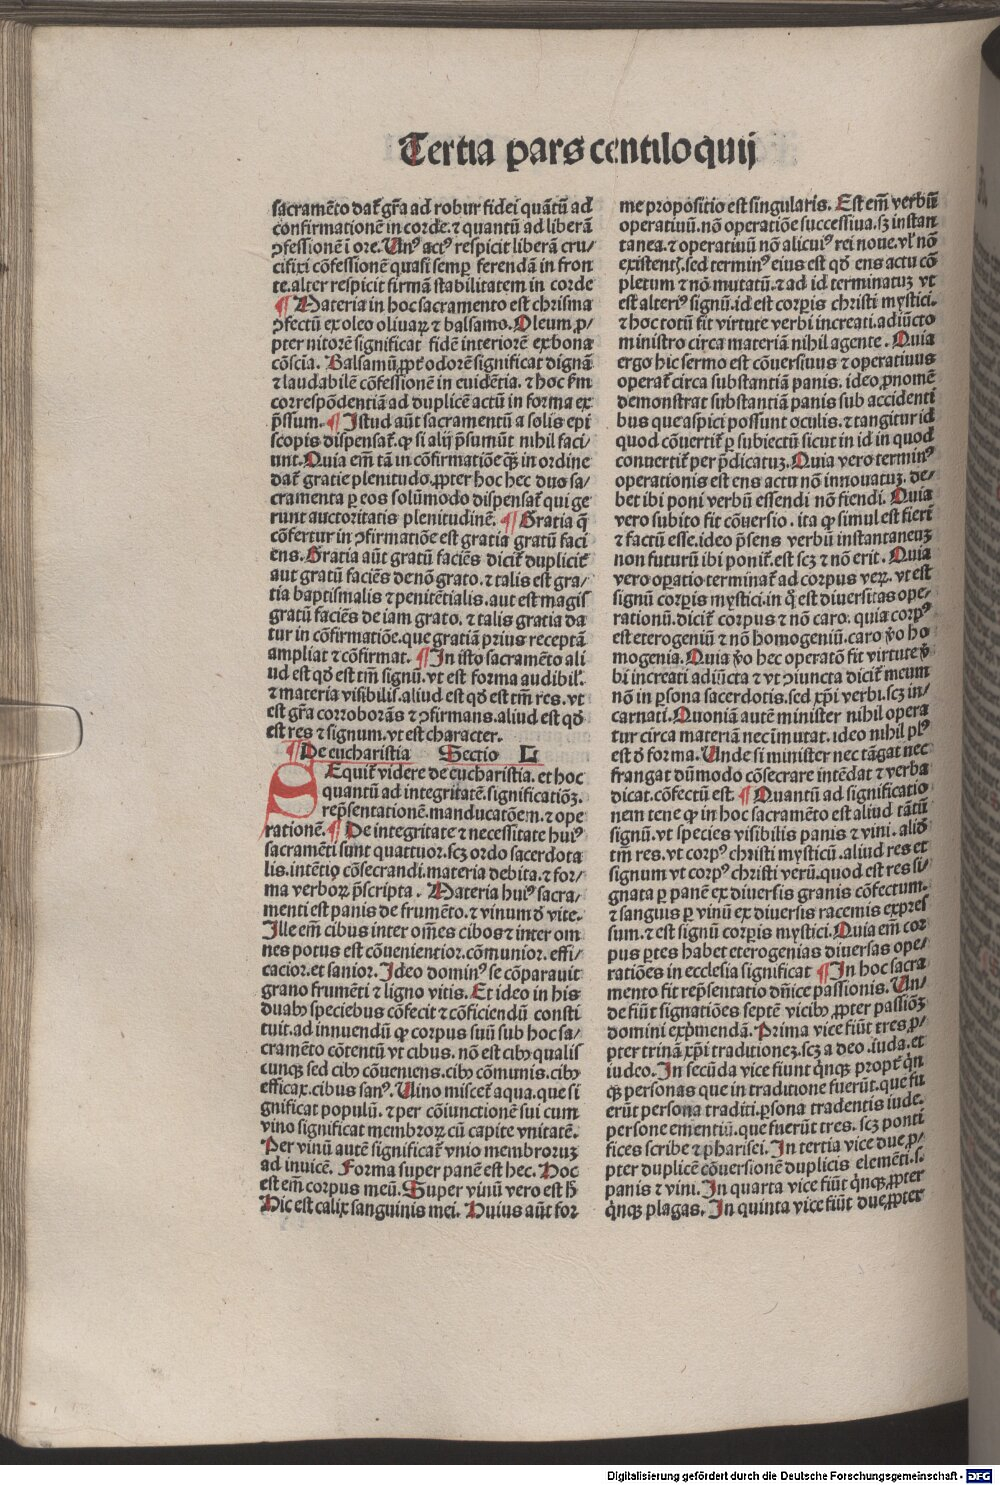 Tertia pars centiloquij
sacramēto dat̄ gr̄a ad robur fidei quātū ad
confirmationē in corde. ⁊ quantū ad liberā
ꝯfessionē ī ore. Unꝰ actꝰ respicit liberā cru/
cifixi cōfessionē quasi semꝑ ferendā in fron
te. alter respicit firmā stabilitatem in corde
¶ Materia in hoc sacramento est chrisma
ꝯfectū ex oleo oliuaꝝ ⁊ balsamo. Oleum ꝓ/
pter nitorē significat fidē interiorē ex bona
cōsciā. Balsamū ꝓpt̄ odorē significat dignā
⁊ laudabilē cōfessionē in euidētia. ⁊ hoc ẜm
correspōdentiā ad duplicē actū in forma ex
p̄ssum. ¶ Istud aūt sacramentū a solis epi
scopis dispensat̄. ꝙ si alij p̄sumūt nihil faci/
unt. Quia em̄ tā in cōfirmatiōe qͣꝫ in ordine
dat̄ gratie plenitudo. ꝓpter hoc hec duo sa/
cramenta ꝑ eos solūmodo dispensat̄ qui ge
runt auctoritatis plenitudinē. ¶ Gratia q̄
cōfertur in ꝯfirmatiōe est gratia gratū faci
ens. Gratia aūt gratū faciēs dicit̄ duplicit̄
aut gratū faciēs de nō grato. ⁊ talis est gra/
tia baptismalis ⁊ penitētialis. aut est magis
gratū faciēs de iam grato. ⁊ talis gratia da
tur in cōfirmatiōe. que gratiā prius receptā
ampliat ⁊ cōfirmat. ¶ In isto sacramēto ali
ud est qd̄ est tm̄ signū. vt est forma audibil̓.
⁊ materia visibilis. aliud est qd̄ est tm̄ res. vt
est gr̄a corroborās ⁊ ꝯfirmans. aliud est qd̄
est res ⁊ signum. vt est character.
¶ De eucharistia Sectio L
SEquit̄ videre de eucharistia. et hoc
quantū ad integritatē. significatiōꝫ.
rep̄sentationē. manducatōem. ⁊ ope
rationē. ¶ De integritate ⁊ necessitate huiꝰ
sacramēti sunt quattuor. scꝫ ordo sacerdota
lis. intētio cōsecrandi. materia debita. ⁊ for/
ma verboꝝ p̄scripta. Materia huiꝰ sacra/
menti est panis de frumēto. ⁊ vinum d̓ vite.
Ille em̄ cibus inter om̄es cibos ⁊ inter om
nes potus est cōuenientior. cōmunior. effi/
cacior. et sanior. Ideo dominꝰ se cōparauit
grano frumēti ⁊ ligno vitis. Et ideo in his
duabꝰ speciebus cōfecit ⁊ cōficiendū consti
tuit. ad innuendū ꝙ corpus suū sub hoc sa/
cramēto cōtentū vt cibus. nō est cibꝰ qualis
cunqꝫ sed cibꝰ cōueniens. cibꝰ cōmunis. cibꝰ
efficax. cibus sanꝰ. Uino miscet̄ aqua. que si
gnificat populū. ⁊ per cōiunctionē sui cum
vino significat membroꝝ cū capite vnitatē.
Per vinū autē significat̄ vnio membrorum
ad inuicē. Forma super panē est hec. Hoc
est em̄ corpus meū. Super vinū vero est h̄
Hic est calix sanguinis mei. Huius aūt for
me propositio est singularis. Est em̄ verbū
oꝑatiuū. nō oꝑatiōe successiua. sꝫ instan
tanea. ⁊ operatiuū nō alicuiꝰ rei noue. vl̓ nō
existentꝭ. sed terminꝰ eius est qd̄ ens actu cō
pletum ⁊ nō mutatū. ⁊ ad id terminatuꝫ vt
est alteriꝰ signū. id est corꝑis christi mystici.
⁊ hoc totū fit virtute verbi increati. adiūcto
ministro circa materiā nihil agente. Quia
ergo hic sermo est cōuersiuus ⁊ operatiuus
operat̄ circa substantiā panis. ideo ꝓnomē
demonstrat substantiā panis sub accidenti
bus que aspici possunt oculis. ⁊ tangitur id
quod cōuertit̄ ꝑ subiectū sicut in id in quod
conuertit̄ per p̄dicatuꝫ. Quia vero terminꝰ
operationis est ens actu nō innouatuꝫ. de/
bet ibi poni verbū essendi nō fiendi. Quia
vero subito fit cōuersio. ita ꝙ simul est fieri
⁊ factū esse. ideo p̄sens verbū instantaneuꝫ
non futurū ibi ponit̄. est scꝫ ⁊ nō erit. Quia
vero oꝑatio terminat̄ ad corpus veꝝ. vt est
signū corꝑis mystici. in q̊ est diuersitas ope/
rationū. dicit̄ corpus ⁊ nō caro. quia corpꝰ
est eterogeniū ⁊ nō homogeniū. caro v̓o ho
mogenia. Quia v̓o hec operatō fit virtute v̓
bi increati adiūcta ⁊ vt ꝯiuncta dicit̄ meum
nō in ꝑsona sacerdotis. sed xp̄i verbi. scꝫ in/
carnati. Quoniā autē minister nihil opera
tur circa materiā nec īmutat. ideo nihil plꝰ
est d̓ forma. Unde si minister nec tāgat nec
frangat dūmodo cōsecrare intēdat ⁊ verba
dicat. cōfectū est. ¶ Quantū ad significatio
nem tene ꝙ in hoc sacramēto est aliud tātū
signū. vt species visibilis panis ⁊ vini. aliđ
tm̄ res. vt corpꝰ christi mysticū. aliud res et
signum vt corpꝰ christi verū. quod est res si/
gnata ꝑ panē ex diuersis granis cōfectum.
⁊ sanguis ꝑ vinū ex diuersis racemis expres
sum. ⁊ est signū corꝑis mystici. Quia em̄ cor
pus ꝑtes habet eterogenias diuersas ope/
ratiōes in ecclesia significat ¶ In hoc sacra
mento fit rep̄sentatio dn̄ice passionis. Un/
de fiūt signatiōes septē vicibꝰ ꝓpter passiōꝫ
domini exp̄mendā. Prima vice fiūt tres ꝓ/
pter trinā xp̄i traditionez. scꝫ a deo. iuda. et
iudeo. In secūda vice fiunt q̇nqꝫ propt̄ q̇n
qꝫ personas que in traditione fuerūt. que fu
erūt persona traditi. ꝑsona tradentis iude.
persone ementiū. que fuerūt tres. scꝫ ponti
fices scribe ⁊ pharisei. In tertia vice due ꝓ/
pter duplicē cōuersionē duplicis elemēti. s.
panis ⁊ vini. In quarta vice fiūt q̇nqꝫ. ꝓpter
q̇nqꝫ plagas. In quinta vice fiūt due. ꝓpter
Digitalisierung gefördert durch die Deutsche Forschungsgemeinschaft - DFG